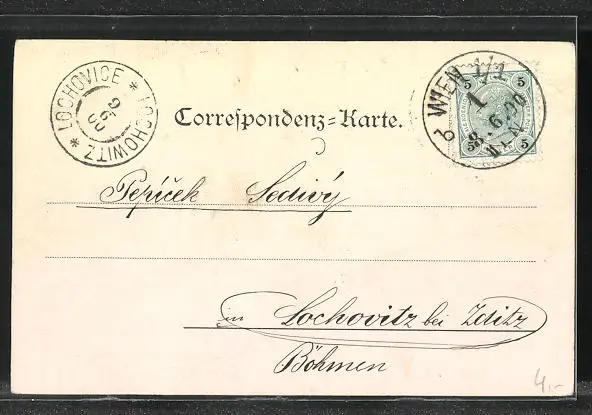 LOCHOVICE * LOCHOWITZ *
9
6
00
WIEN 1/1
1
8.6.00
5 5
5 5
Correspondenz-Karte.
Pepíček Šedivý
in Lochovitz bei Zditz
Böhmen
4,-